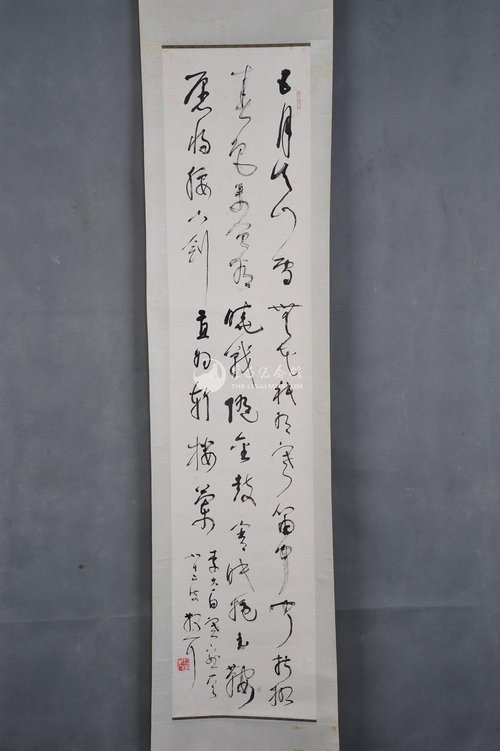 五月天山雪無花祇有寒笛中聞折柳
春色未曾看曉戰隨金鼓宵眠抱玉鞍
願將腰下劍直為斬樓蘭
李太白塞
八十二 散耳
THE LISAI MUSEUM